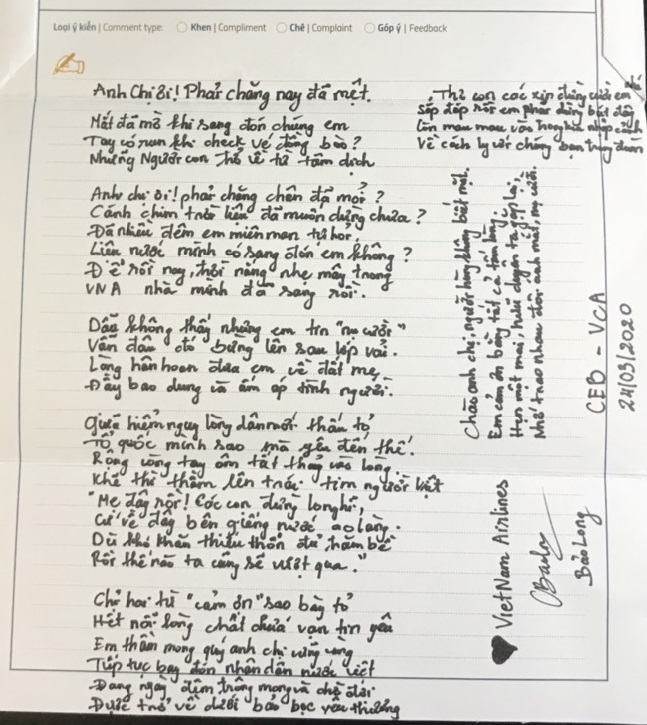 Loại ý kiến | Comment type: Khen | Compliment Chê | Complaint Góp ý | Feedback
Anh Chị ơi! Phải chăng nay đã mệt.
Mắt đã mờ khi sang đón chúng em
Tay có run khi check vé đồng bào?
Những Người con trở về từ tâm dịch
Anh chị ơi! phải chăng chân đã mỏi?
Cánh chim trời liệu đã muốn dừng chưa?
Đã nhiều đêm em miên man tự hỏi,
Liệu nước mình có sang đón em không?
Để rồi nay, trời nắng nhẹ mây trong
VNA nhà mình đã sang rồi.
Dẫu không thấy nhưng em tin "nụ cười"
Vẫn đâu đó bừng lên sau lớp vải.
Lòng hân hoan đưa em về đất mẹ,
Đầy bao dung và ấm áp tình người.
Giữa hiểm nguy lòng dân mới thấu tỏ
Tổ quốc mình sao mà yêu đến thế!
Rộng vòng tay ôm tất thảy vào lòng
Khẽ thì thầm lên trái tim người Việt
"Mẹ đây rồi! Các con đừng lo nghĩ,
Cứ về đây bên giếng nước ao làng.
Dù khó khăn thiếu thốn đủ trăm bề
Rồi thế nào ta cũng sẽ vượt qua."
Chỉ hai từ "cảm ơn" sao bày tỏ
Hết nỗi lòng chất chứa vạn tin yêu
Em thầm mong quý anh chị vững vàng
Tiếp tục bay đón nhân dân nước Việt
Đang ngày đêm trông mong và chờ đợi
Được trở về dưới bảo bọc yêu thương
Thử con các xếp đừng cười em nhé
Sắp đáp rồi em phải dừng bút đây
Còn mau mau vào trong nhập cảnh
Về cách ly với chúng bạn trong đoàn
Chào anh chị, người hùng không biết mệt,
Em cảm ơn bằng tất cả tấm lòng,
Hẹn một mai, hữu duyên ta gặp lại,
Nhớ trao nhau đôi ánh mắt, nụ cười.
CEB - VCA
24/03/2020
VietNam Airlines
Bảo Long